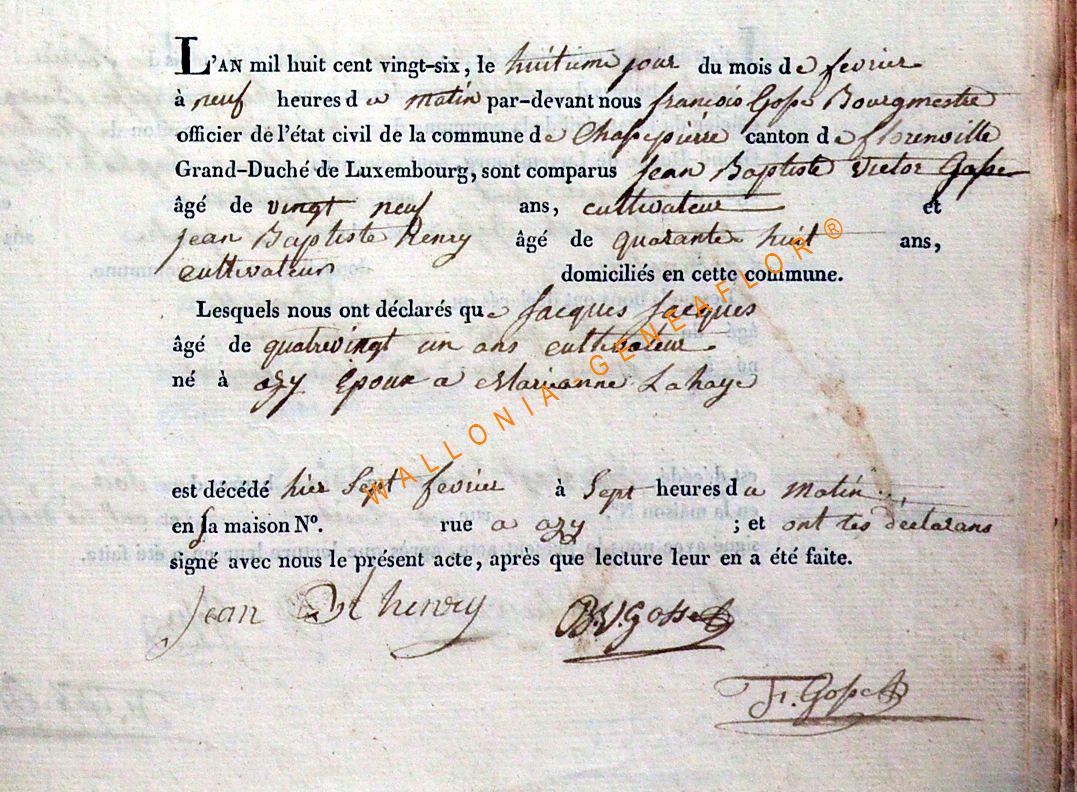 L'AN mil huit cent vingt-six, le huitieme jour du mois de fevrier
à neuf heures du matin par-devant nous françois Gosse Bourgmestre
officier de l'état civil de la commune de Chassepierre canton de florenville
Grand-Duché de Luxembourg, sont comparus Jean Baptiste Victor Gosse
âgé de vingt neuf ans, cultivateur et
Jean Baptiste Henry âgé de quarante huit ans,
cultivateur domiciliés en cette commune.
Lesquels nous ont déclarés que Jacques Jacques
âgé de quatrevingt un ans cultivateur
né à azy Epoux a Marianne Lahaye
est décédé hier Sept fevrier à Sept heures du Matin
en sa maison N°. rue a azy ; et ont les déclarans
signé avec nous le présent acte, après que lecture leur en a été faite.
Jean Bt henry B.V. Gosse
F. Gosse
WALLONIA GENEAFLOR ®